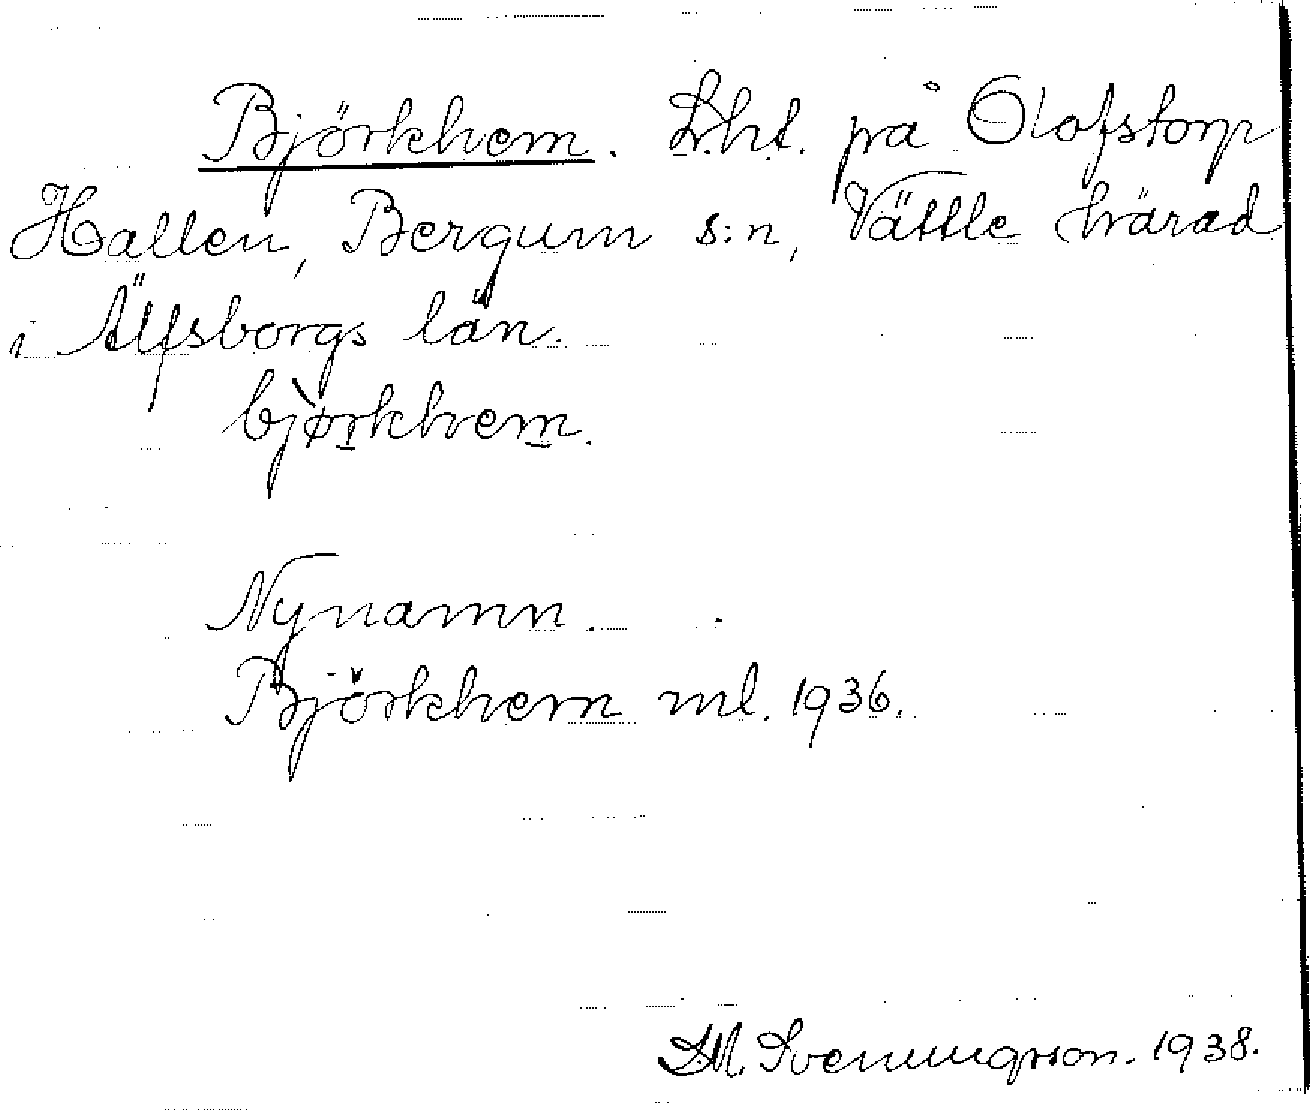 Björkhem. Lht. på Olofstorp
Hallen, Bergum s:n, Vättle härad
i Älfsborgs län.
bjørkhem.
Nynamn.
Björkhem ml. 1936.
M. Svenungsson. 1938.